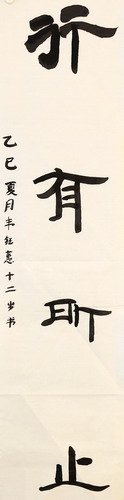 行有所止
乙巳夏月丰钰憙十二岁书